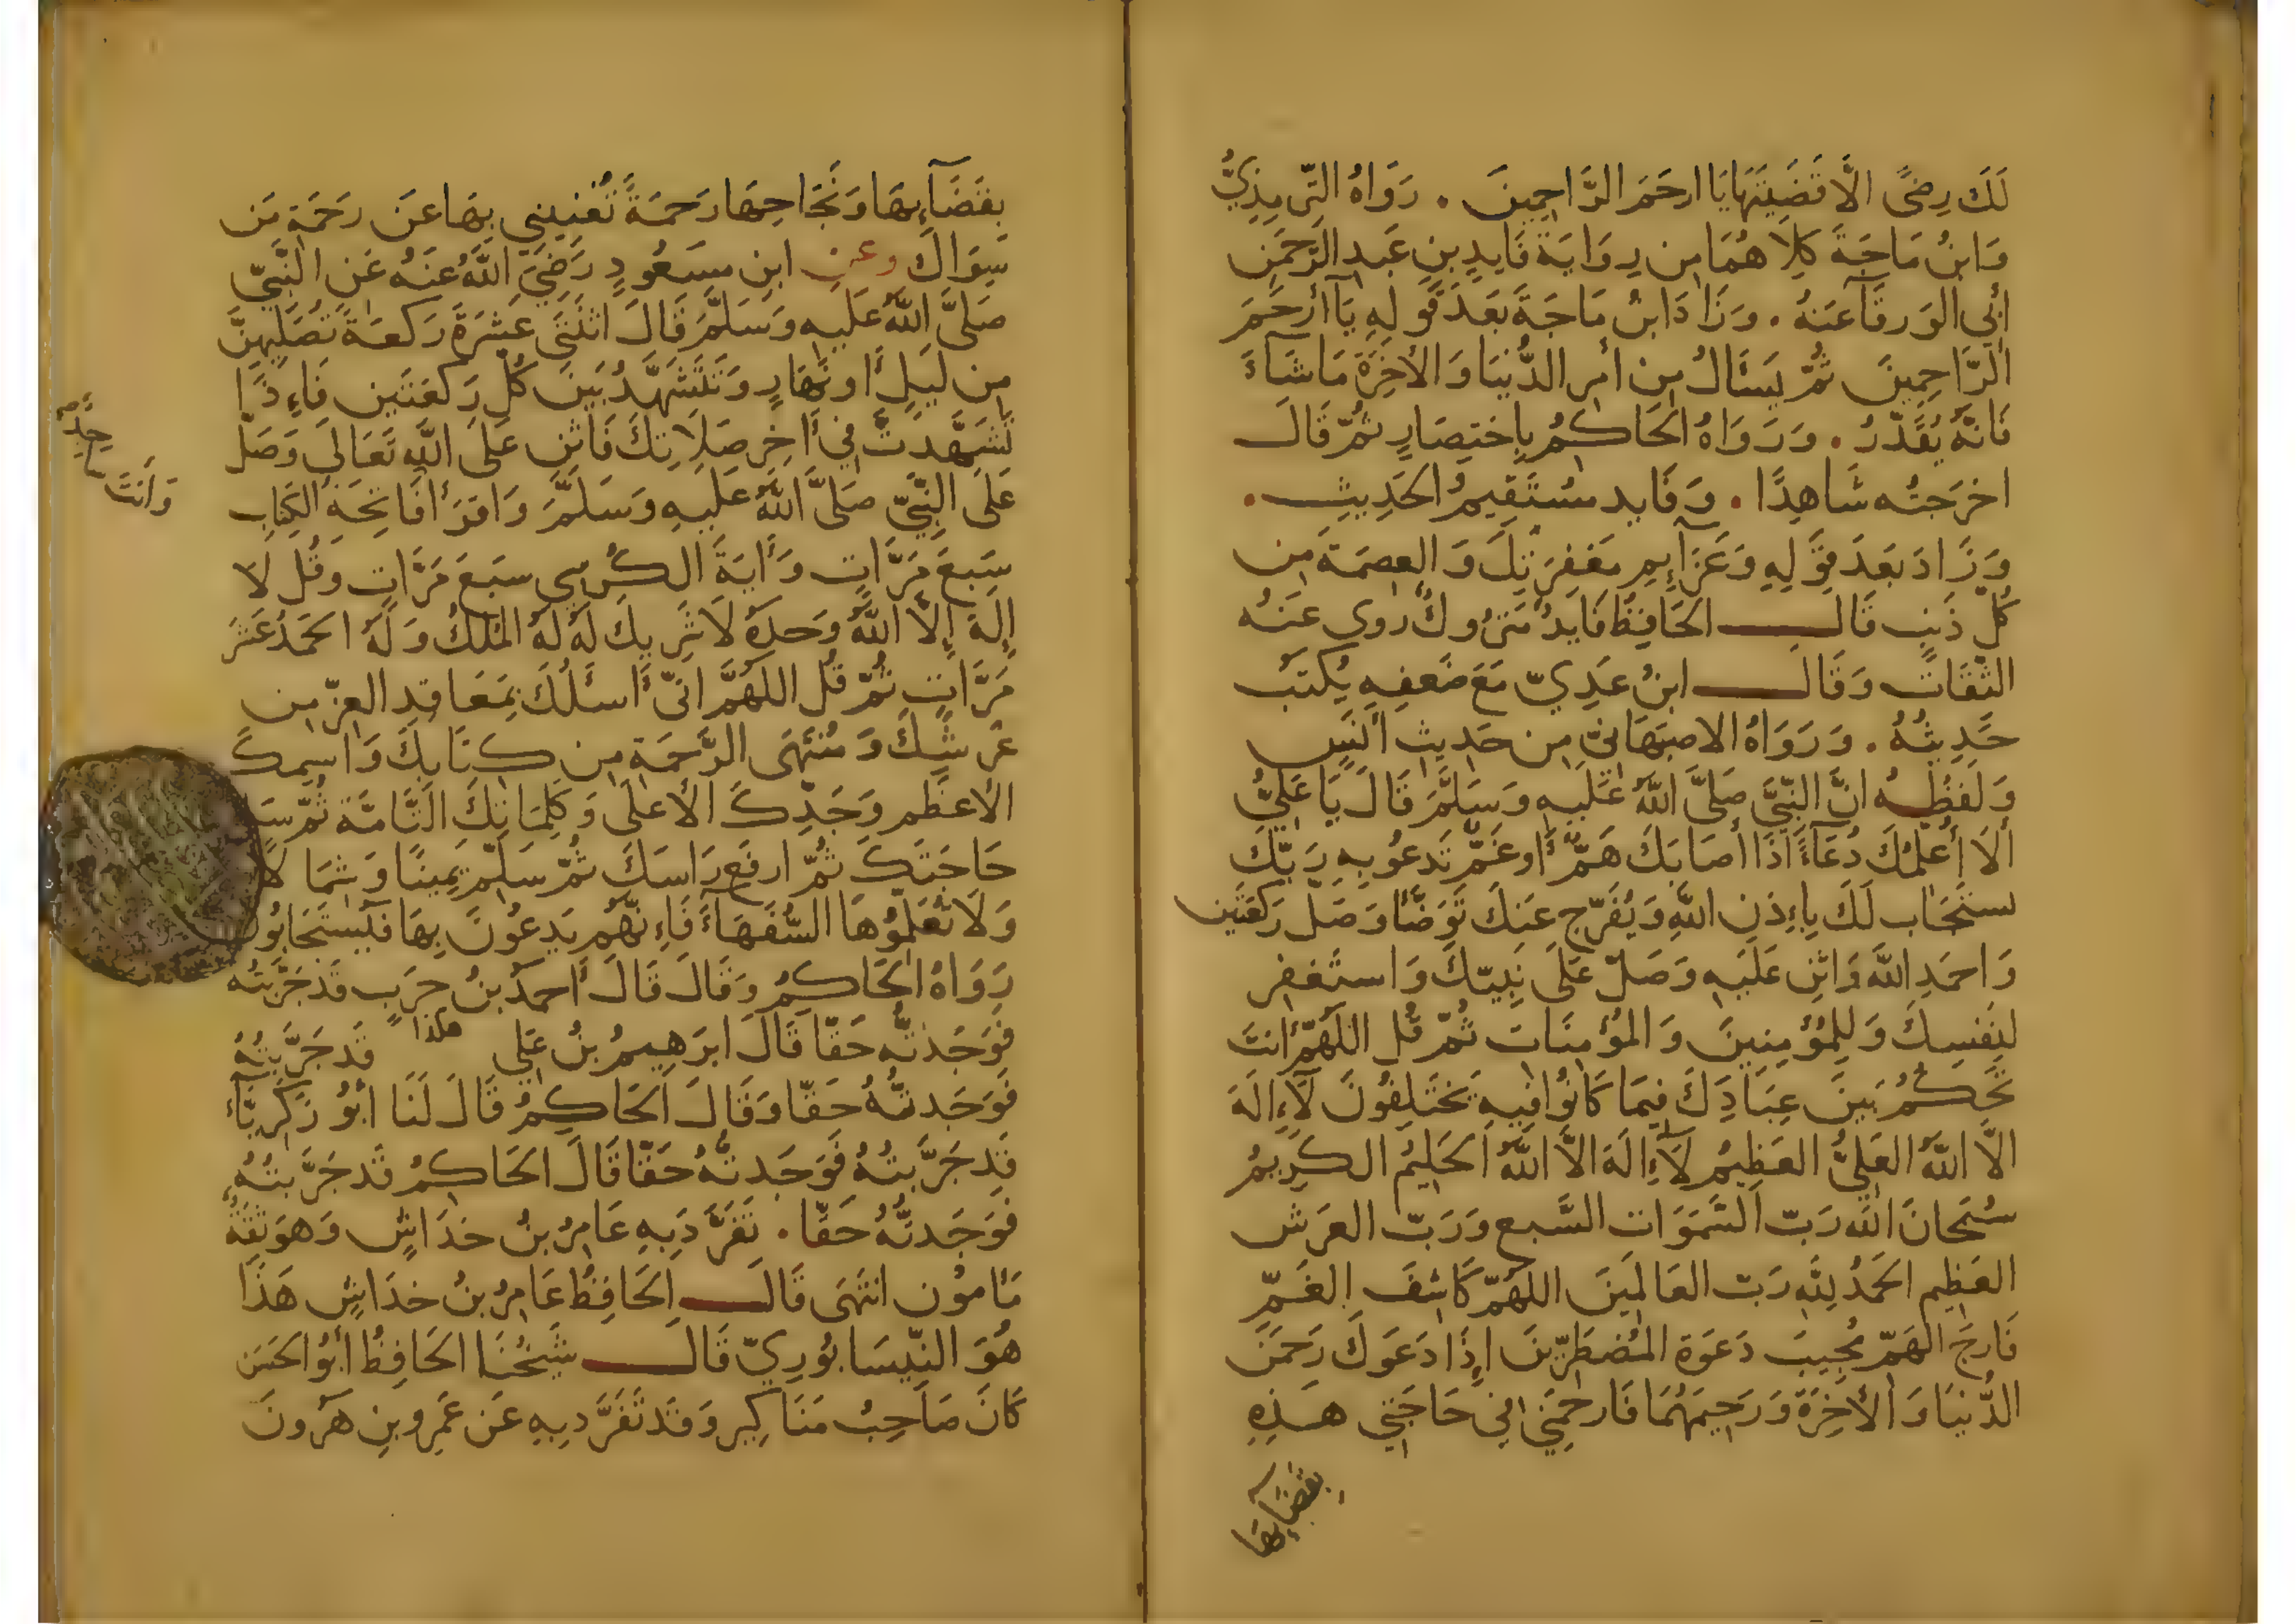 لَكَ رِضًى الَّا قَضَيْتَهَا يَا ارحَمَ الرَّاحِمِينَ . رَوَاهُ التِّرمِذِيُّ
وَابنُ مَاجَةَ كِلَاهُمَا مِن رِوَايَةِ فَايِدِ بنِ عَبدِ الرَّحمَنِ
أبِي الوَرقَآ عَنهُ . وَزَادَ ابنُ مَاجَةَ بَعدَ قَولِهِ يَآ أرحَمَ
الرَّاحِمِينَ ثُمَّ يَسئَالُ مِن أمرِ الدُّنيَا وَالأخِرَةِ مَا شَآءَ
فَانَّهُ يُقَدَّرُ . وَرَوَاهُ الحَاكِمُ بِاختِصَارٍ ثُمَّ قَالَ
اخرَجتُه شَاهِدًا . وَفَايِد مُستَقِيمُ الحَدِيثِ .
وَزَادَ بَعدَ قَولِهِ وَعَزَآئِمِ مَغفِرَتِكَ وَالعِصمَةَ مِن
كُلِّ ذَنبٍ قَالَ الحَافِظُ فَايِدٌ مَترُوكٌ روى عَنهُ
الثِّقَاتُ وَقَالَ ابنُ عَدِيّ مَعَ ضَعفِهِ يُكتَبُ
حَدِيثُهُ . وَرَوَاهُ الاصبَهَانِيّ مِن حَدِيثِ أنَسٍ
وَلَفظُهُ انَّ النَّبِيَّ صَلَّى اللَّهُ عَلَيهِ وَسَلَّمَ قَالَ يَا عَلِيُّ
ألَا أُعَلِّمُكَ دُعَآءً اذَا أصَابَكَ هَمٌّ أَو غَمٌّ تَدعُو بِهِ رَبَّكَ
يستَجَاب لَكَ بِإِذنِ اللَّهِ وَيُفَرَّج عَنكَ تَوَضَّأ وَصَلِّ رَكعَتَين
وَاحمَدِ اللَّهَ وَاثنِ عَلَيهِ وَصَلِّ عَلَى نَبِيِّكَ وَاستَغفِر
لِنَفسِكَ وَلِلمُؤمِنِينَ وَالمُؤمِنَات ثُمَّ قُلِ اللَّهُمَّ أنتَ
تَحكُمُ بَينَ عِبَادِكَ فِيمَا كَانُوا فِيهِ يَختَلِفُونَ لَآ إِلَهَ
الَّا اللَّهُ العَلِيُّ العَظِيمُ لَآ إِلَهَ الَّا اللَّهُ الحَلِيمُ الكَرِيمُ
سُبحَانَ اللَّه رَبّ السَّمَوَات السَّبع وَرَبّ العَرش
العَظِيم الحَمدُ لِلَّهِ رَبّ العَالَمِينَ اللَّهُمَّ كَاشِفَ الغَمِّ
فَارِجَ الهَمِّ مُجِيبَ دَعوَةِ المُضطَرِّينَ إِذَا دَعَوكَ رَحمَنَ
الدُّنيَا وَالأخِرَةِ وَرَحِيمَهُمَا فَارحَمنِي فِي حَاجَتِي هَذِهِ
بِقَضَآئِهَا
بِقَضَآئِهَا وَنَجَاحِهَا رَحمَةً تُغنِينِي بِهَا عَن رَحمَةِ مَن
سِوَاكَ وعن ابنِ مسعُودٍ رَضِيَ اللَّهُ عَنهُ عَنِ النَّبِيّ
صَلَّى اللَّهُ عَلَيهِ وَسَلَّمَ قَالَ اثنَتَي عَشرَةَ رَكعَةً تُصَلِّيهِنَّ
مِن لَيلٍ أَو نَهَارٍ وَتَتَشَهَّدُ بَينَ كُلِّ رَكعَتَينِ فَإِذَا
تَشَهَّدتَ فِي أَخِرِ صَلَاتِكَ فَاثنِ عَلَى اللَّهِ تَعَالَى وَصَلِّ
عَلَى النَّبِيّ صَلَّى اللَّهُ عَلَيهِ وَسَلَّمَ وَاقرَأ فَاتِحَةِ الكِتَابِ
وَأَنتَ سَاجِدٌ
سَبعَ مَرَّاتٍ وَأَيَةَ الكُرسِي سبَعَ مَرَّاتٍ وقُل لَا
إِلَهَ إِلَّا اللَّهُ وَحدَهُ لَا شَرِيكَ لَهُ لَهُ المُلكُ وَلَهُ الحَمدُ عَشرَ
مَرَّاتٍ ثُمَّ قُلِ اللَّهُمَّ انِّي أَسئَلُكَ بِمَعَاقِدِ العِزّ مِن
عَرشِكَ وَمُنتَهَى الرَّحمَةِ مِن كِتَابِكَ وَاسمِكَ
الأعظَم وَجَدِّكَ الأعلَى وَكَلِمَاتِكَ التَّامَّة ثُمَّ سَل
حَاجَتَكَ ثُمَّ ارفَع رَاسَكَ ثُمَّ سَلِّم يَمِينًا وَشِمَالًا
وَلَا تُعَلِّمُوهَا السُّفَهَآءَ فَإِنَّهُم يَدعُونَ بِهَا فَيُستَجَابُون
رَوَاهُ الحَاكِمُ وَقَالَ قَالَ أَحمَدُ بنُ حَربٍ قَد جَرَّبتُه
فَوَجَدتُّه حَقّا قَالَ ابرَهِيمُ بنُ عَلِي هكذا قَد جَرَّبتُهُ
فَوَجَدتُّهُ حَقّا وَقَالَ الحَاكِمُ قَالَ لَنَا أبُو زَكَرِيَّآ
قَد جَرَّبتُهُ فَوَجَدتُّهُ حَقّا قَالَ الحَاكِمُ قَد جَرَّبتُهُ
فَوَجَدتُّهُ حَقّا . تَفَرَّدَ بِهِ عَامِرُ بنُ خدَاشٍ وَهوَ ثِقَةٌ
مَأمُون انتَهَى قَالَ الحَافِظُ عَامِرُ بنُ خدَاشٍ هَذَا
هُوَ النِّيسَابُورِيّ قَالَ شَيخُنَا الحَافِظُ أبُو الحَسَن
كَانَ صَاحِبُ مَنَاكِير وَقَد تَفَرَّد بِهِ عَن عَمرِو بنِ هَرُونَ